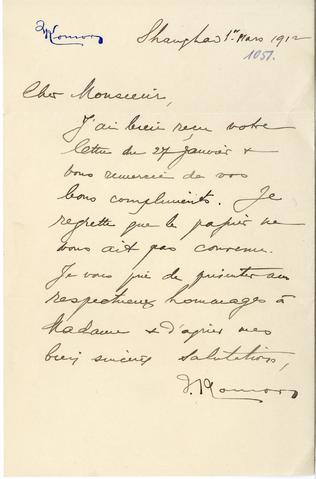 Shanghai 1er Mars 1912
1051.
Cher Monsieur,
J'ai bien reçu votre
lettre du 27 Janvier &
vous remercie de vos
bons compliments. Je
regrette que le papier ne
vous ait pas convenu.
Je vous prie de présenter mes
respectueux homages à
Madame & d'agréer mes
bien sincères salutations,